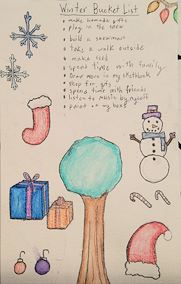 Winter Bucket List
make homemade gifts
play in the snow
build a snowman
take a walk outside
make
spend time with family
Draw more in my sketchbook
shop for gifts
spend time with friends
listen to music by myself
paint on my